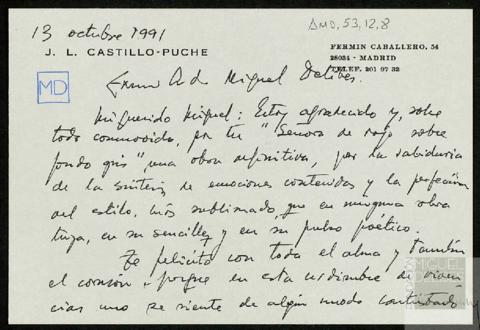 13 octubre 1991
AMD, 53, 12, 8
J. L. CASTILLO-PUCHE
FERMIN CABALLERO, 54
28034 - MADRID
TELEF. 201 97 32
Miguel Delibes.
MD
Mi querido Miguel: Estoy agradecido y, sobre
todo conmovido, por tu "Señora de rojo sobre
fondo gris", una obra definitiva, por la sabiduría
de la síntesis de emociones contenidas y la perfección
del estilo, más sublimado, que en ninguna obra
tuya, en su sencillez y en su pulso poético.
Te felicito con toda el alma y también
el corazón, porque en esta urdimbre de viven-
cias uno se siente de algún modo contristado
FUNDACIÓN MIGUEL DELIBES